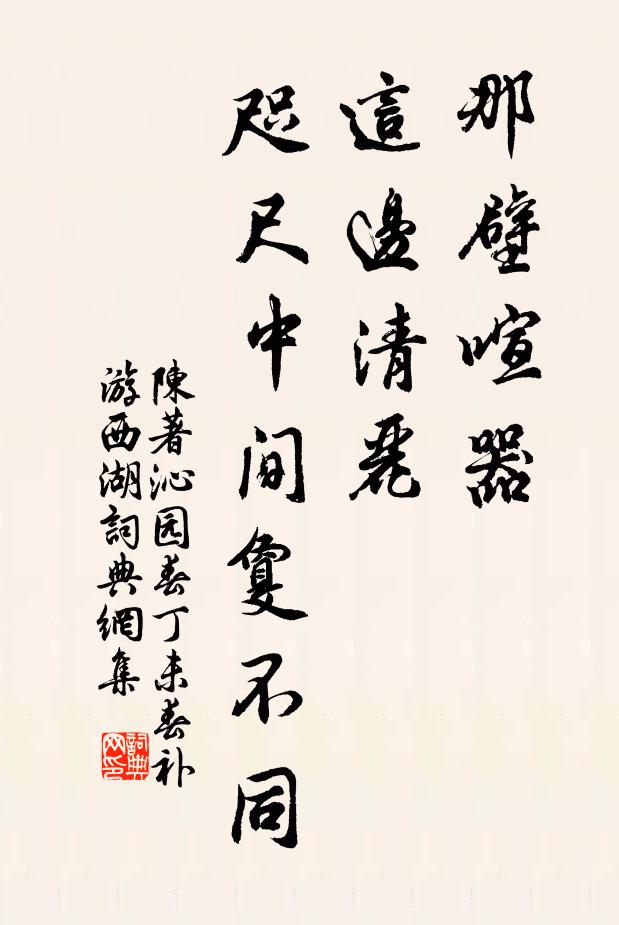 那壁喧嚣
這邊清麗
咫尺中間敻不同
陳著沁园春丁未春补
游西湖詞典網集
詞典
网印